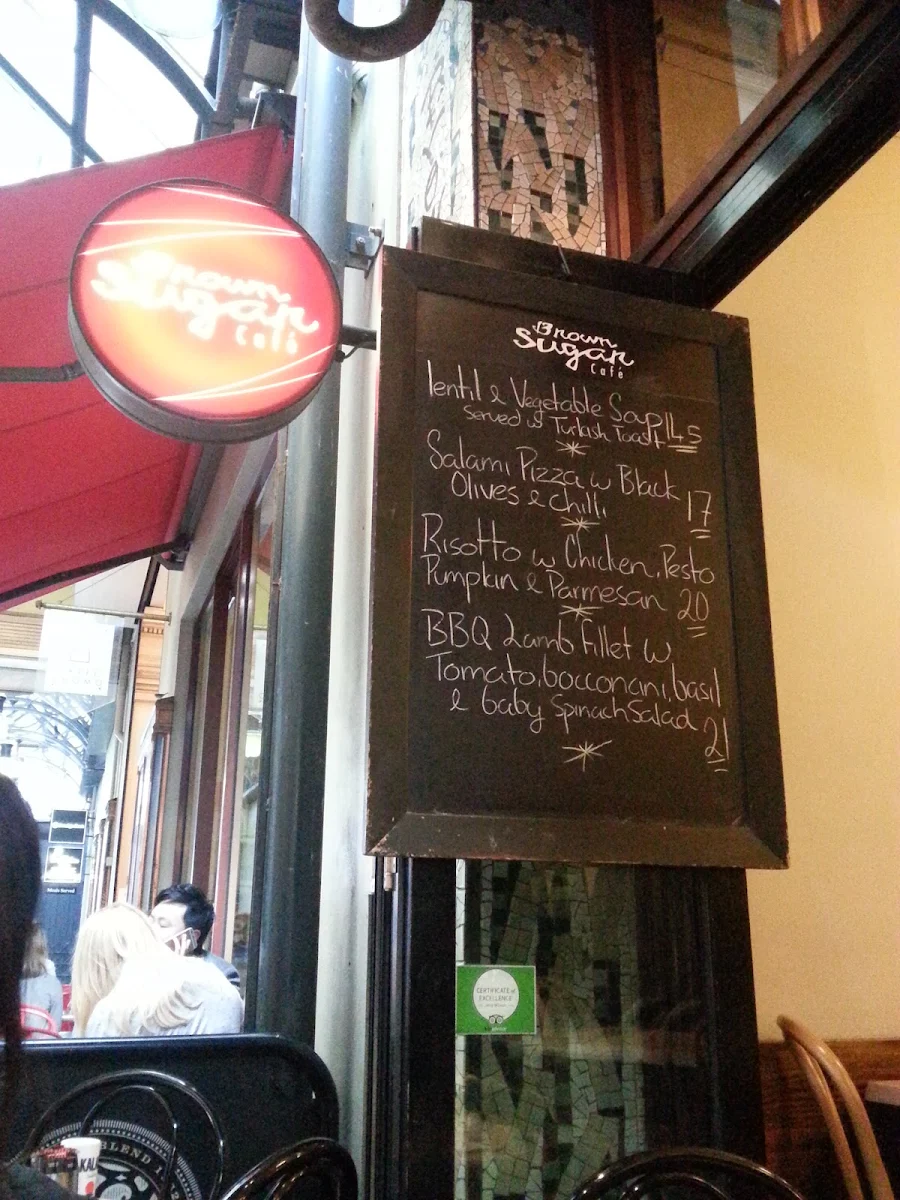 Brown
Sugar
Café
Brown
Sugar
Café
lentil & Vegetable Soup 14.5
served w Turkish Toast
Salami Pizza w Black
Olives & chilli 17
Risotto w Chicken, Pesto
Pumpkin & Parmesan 20
BBQ Lamb fillet w
Tomato, bocconcini, basil
& baby Spinach Salad 21
CERTIFICATE of
EXCELLENCE
BLEND